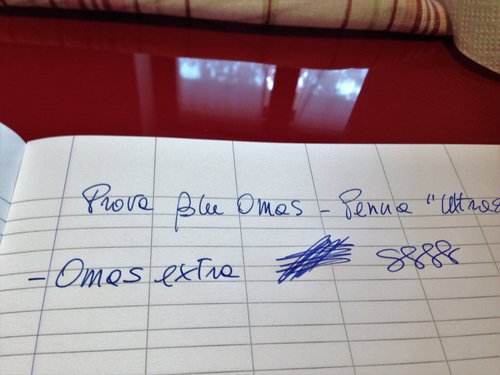 Prova blu Omas - Penna "Ultras
- Omas extra 8888